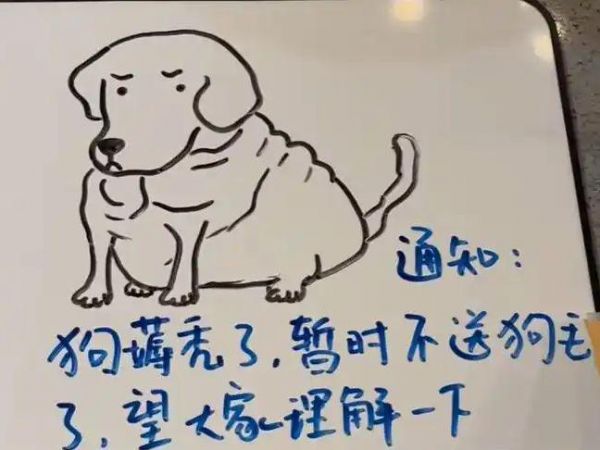 通知：
狗薅秃了，暂时不送狗毛
了，望大家理解一下